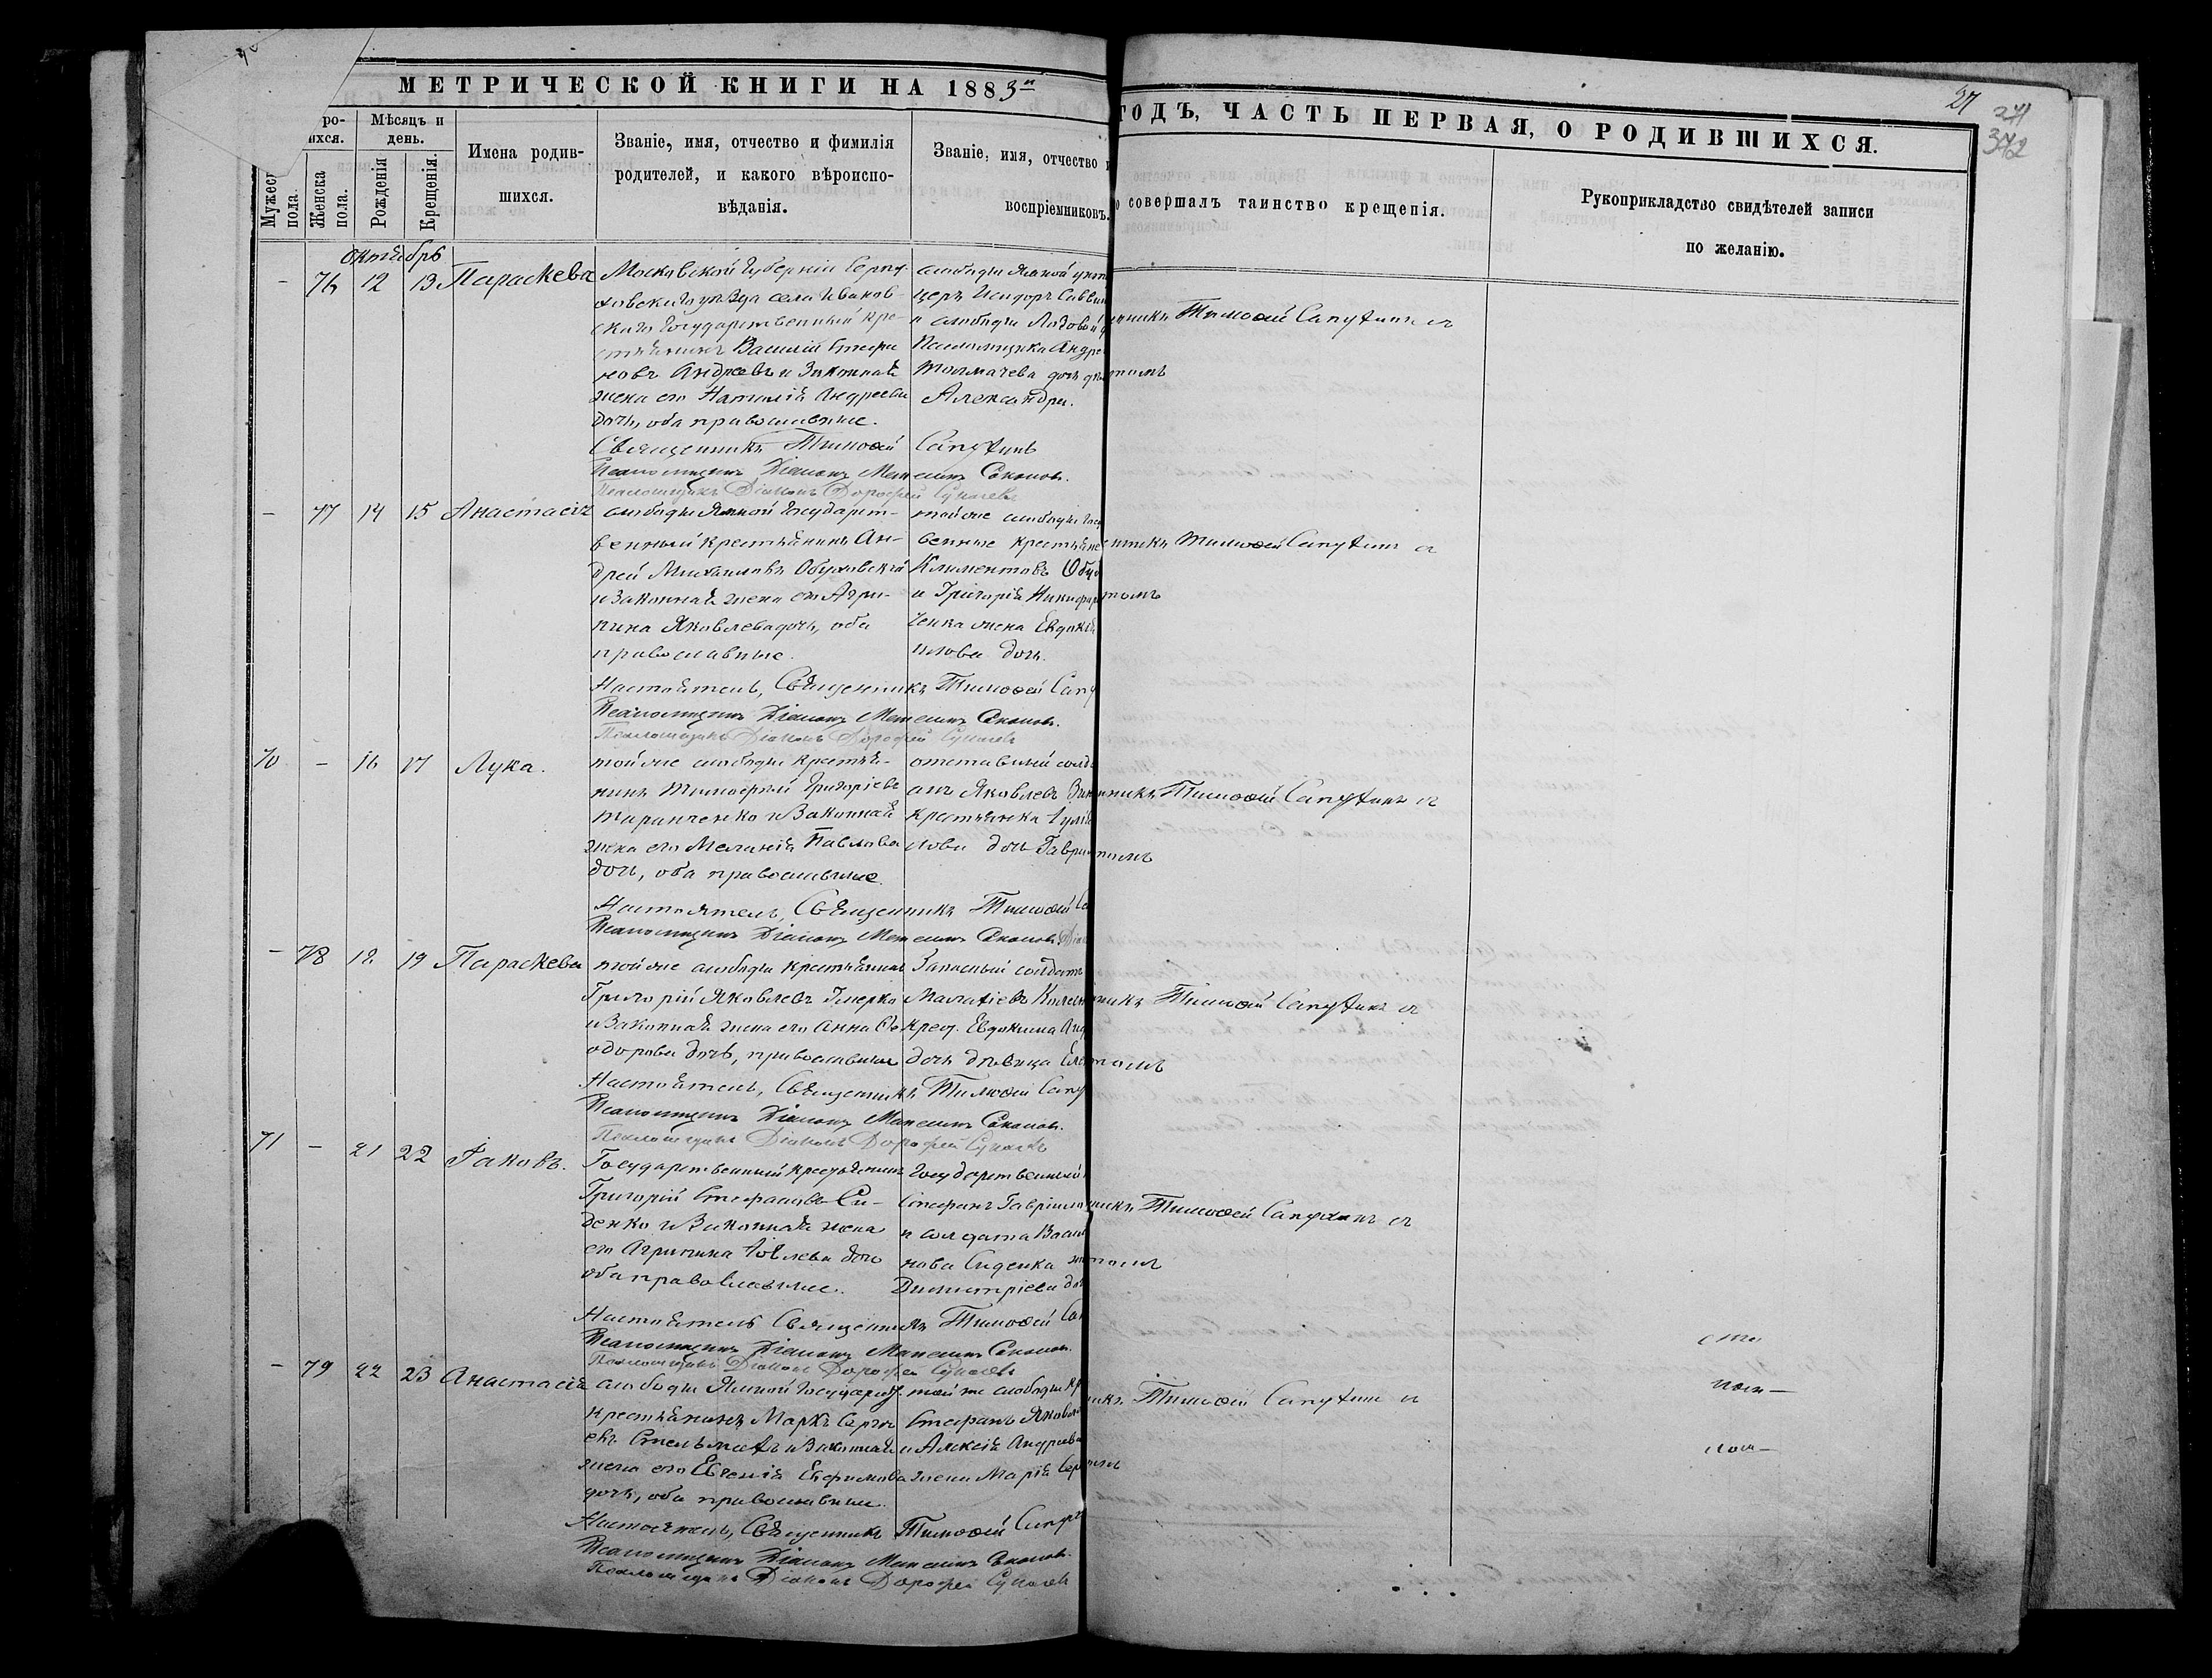 МЕТРИЧЕСКОЙ КНИГИ НА 1883й
ГОДЪ, ЧАСТЬ ПЕРВАЯ, О РОДИВШИХСЯ.
27
271
372
ро-
ихся.
Мужеск
пола.
Женска
пола.
Мѣсяцъ и
день.
Рожденія
Крещенія.
Имена родив-
шихся.
Званіе, имя, отчество и фамилія
родителей, и какого вѣроиспо-
вѣданія.
Званіе, имя, отчество и
воспріемниковъ.
совершалъ таинство крещенія.
Рукоприкладство свидѣтелей записи
по желанію.
Октябрь
- 76 12 13 Параскева
Московской Губерніи Серпу-
ховскаго уѣзда села Иванов-
скаго Государственный кре-
стьянинъ Василій Стефа
новъ Андреевъ и Законная
жена его Наталія Андреева
дочь, оба православные.
слободы Ямной
церъ Исидоръ Савви
и слободы Лядовой
Псаломщика Андре
Толмачева дочь
Александра.
нникъ Тимофей Сапухинъ съ
томъ
Священникъ Тимофей Сапухинъ
Псаломщикъ Діаконъ Максимъ Соколов.
Псаломщикъ Діаконъ Дорофей Сукачевъ
- 77 14 15 Анастасія
слободы Ямной Государст-
венный крестьянинъ Ан-
дрей Михаиловъ Обуховскій
и Законная жена его Агри-
пина Яковлева дочь, оба
православные.
той же слободы Госу
венные крестьяне
Климентовъ Обу
и Григорія Никифор
ченка жена Евдокія
илова дочь.
енникъ Тимофей Сапухинъ съ
томъ
Настоятель, Священникъ Тимофей Сапу
Псаломщикъ Діаконъ Максимъ Соколов.
Псаломщикъ Діаконъ Дорофей Сукачевъ
70 - 16 17 Лука.
той же слободы крестья-
нинъ Тимофей Григоріевъ
Таранченко и Законная
жена его Меланія Павлова
дочь, оба православные.
отставный солд
анъ Яковлевъ
крестьянка
лова дочь Гаври
никъ Тимофей Сапухинъ съ
томъ
Настоятель, Священникъ Тимофей Са
Псаломщикъ Діаконъ Максимъ Соколов.
- 78 18 19 Параскева
той же слободы крестьянинъ
Григорій Яковлевъ
и Законная жена его Анна Ѳе
одорова дочь, православные
Запасный солдатъ
Малахіевъ
крест. Евдокима
дочь дѣвица
никъ Тимофей Сапухинъ съ
томъ
Настоятель, Священникъ Тимофей Сапу
Псаломщикъ Діаконъ Максимъ Соколов.
Псаломщикъ Діаконъ Дорофей Сукачевъ
71 - 21 22 Іаковъ.
Государственный крестьянинъ
Григорій Стефановъ Си-
денко и Законная жена
его Агрипина Іовлева дочь
оба православные.
Государственный
Стефанъ Гавріило
и солдата Васи
нова Сиденка
Димитріева до
никъ Тимофей Сапухинъ съ
томъ
Настоятель Священникъ Тимофей Са
Псаломщикъ Діаконъ Максимъ Соколов.
Псаломщикъ Діаконъ Дорофей Сукачевъ
- 79 22 23 Анастасія
слободы Ямной Государст.
крестьянинъ Маркъ Серге
евъ Стельмахъ и Законная
жена его Евгенія Ефимова
дочь, оба православные.
той же слободы кр
Стефанъ Яковле
и Алексія Андреева
жена Марія Сер
никъ Тимофей Сапухинъ съ
томъ
Настоятель, Священникъ Тимофей Сапух
Псаломщикъ Діаконъ Максимъ Соколов.
Псаломщикъ Діаконъ Дорофей Сукачевъ